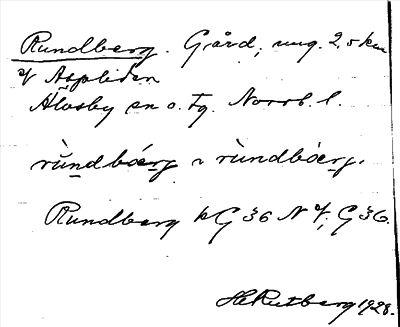 Rundberg. Gård, ung. 2,5 km
V Aspliden
Älvsby sn o. tg. Norrb. l.
rùndbǽrg ɿ rùndbǽrg.
Rundberg kG 36 N V, G 36.
H. Rutberg 1928.